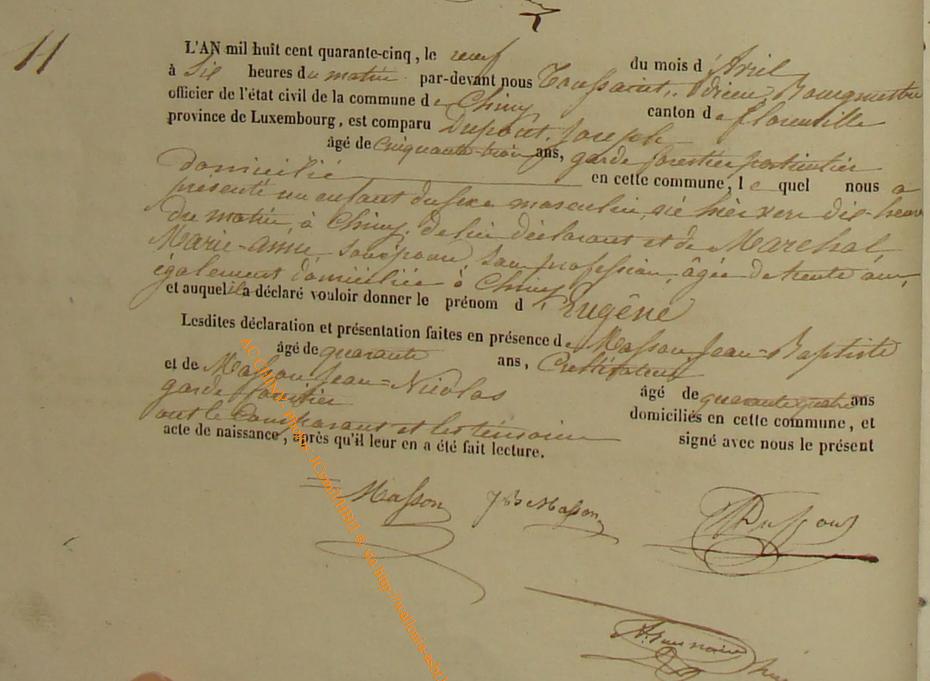 11
L'AN mil huit cent quarante-cinq, le neuf du mois d'Avril
à Six heures du matin par-devant nous Toussaint, Bourgmestre
officier de l'état civil de la commune de Chiny canton de florenville
province de Luxembourg, est comparu Dupont, Joseph
âgé de cinquante-trois ans, garde forestier particulier
domicilié en cette commune, le quel nous a
présenté un enfant du sexe masculin, né hier vers dix-heures
du matin, à Chiny, de lui déclarant et de Marechal
Marie-anne son épouse, sans profession, âgée de trente ans,
également domiciliée à Chiny
et auquel il a déclaré vouloir donner le prénom d'Eugène
Lesdites déclaration et présentation faites en présence de Masson Jean-Baptiste
âgé de quarante ans, Cultivateur
et de Masson Jean-Nicolas âgé de quarante quatre ans
garde forestier domiciliés en cette commune, et
ont le Comparant et les témoins signé avec nous le présent
acte de naissance, après qu'il leur en a été fait lecture.
Masson JB Masson